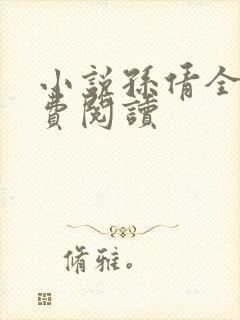 小說孫倩全
費閱讀
脩雅。